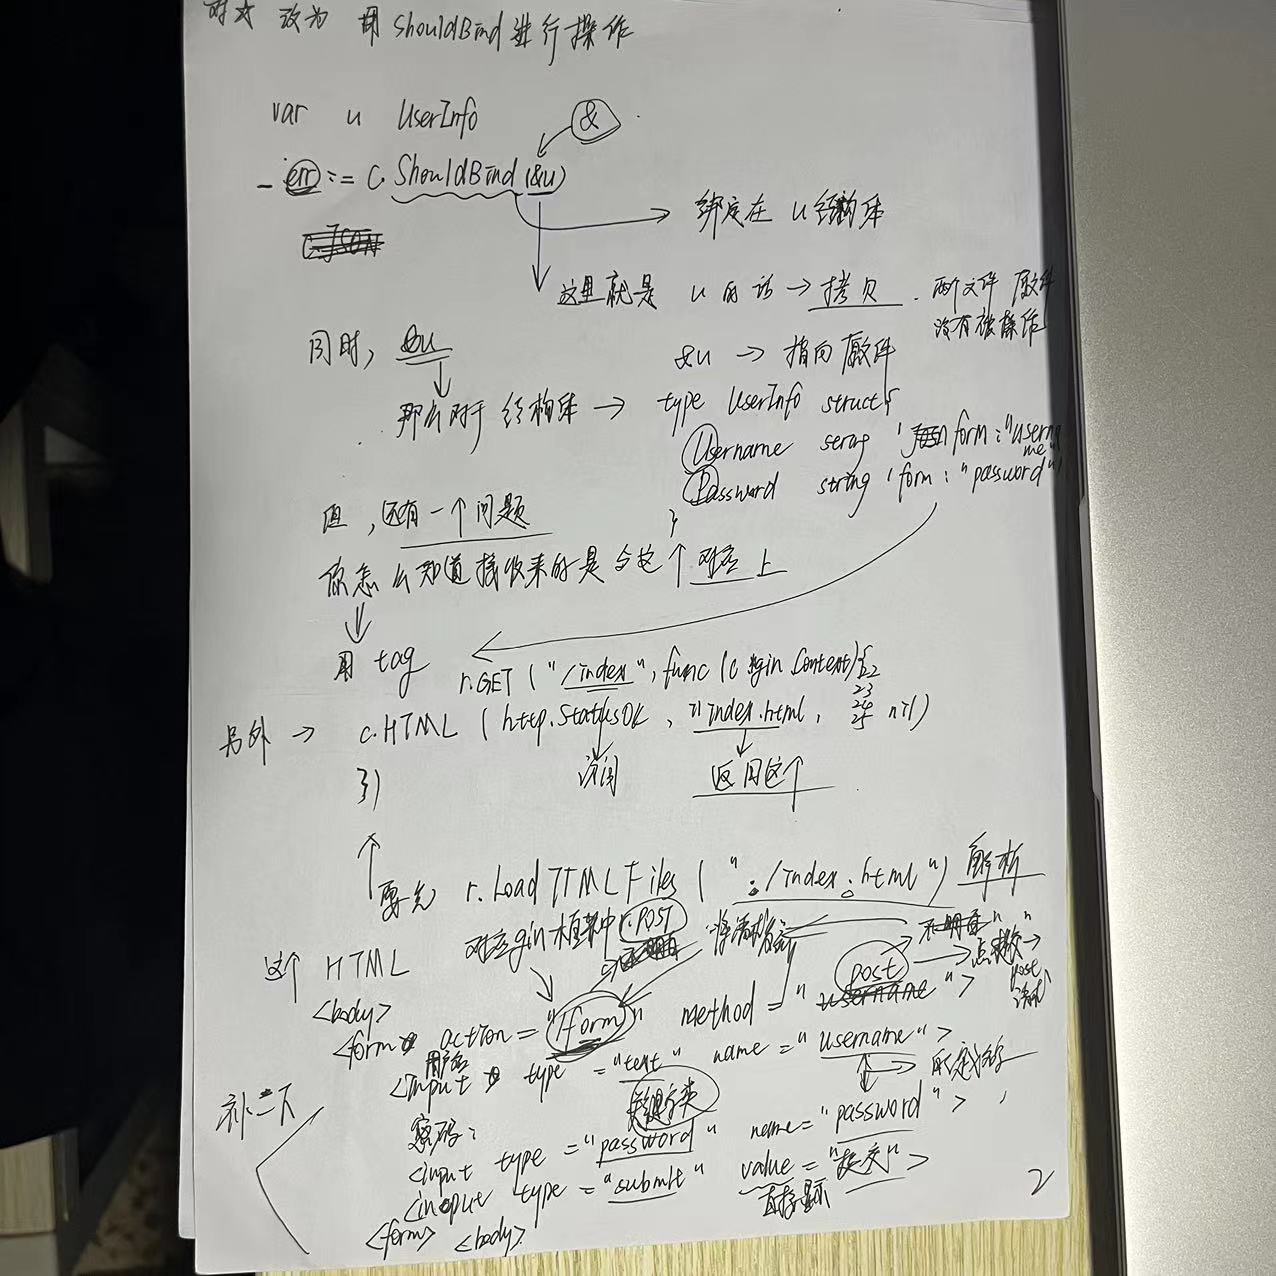 改为 用 ShouldBind 进行操作
var u UserInfo
&
err := c.ShouldBind(&u)
绑定在 u 结构体
这里就是 u 的话 → 拷贝. 两个文件 原文件
没有被操作
同时, &u
&u → 指向原件
那么对于 结构体 → type UserInfo struct{
Username string `form:"username"
Password string `form:"password"`
}
但,还有一个问题
你怎么知道接收来的是与这个对应上
用 tag
r.GET("/index", func(c *gin.Context){
另外 → c.HTML (http.StatusOK, "index.html, nil)
访问 返回这个
})
要先 r.LoadHTMLFiles("./index.html") 解析
对应gin框架中 r.POST
这个 HTML
post → 点提交 → post
<body>
<form action="/form" method="post">
用户名
<input type="text" name="username">
补一下
密码:
<input type="password" name="password">
<input type="submit" value="提交">
直接显示
<form> <body>
2